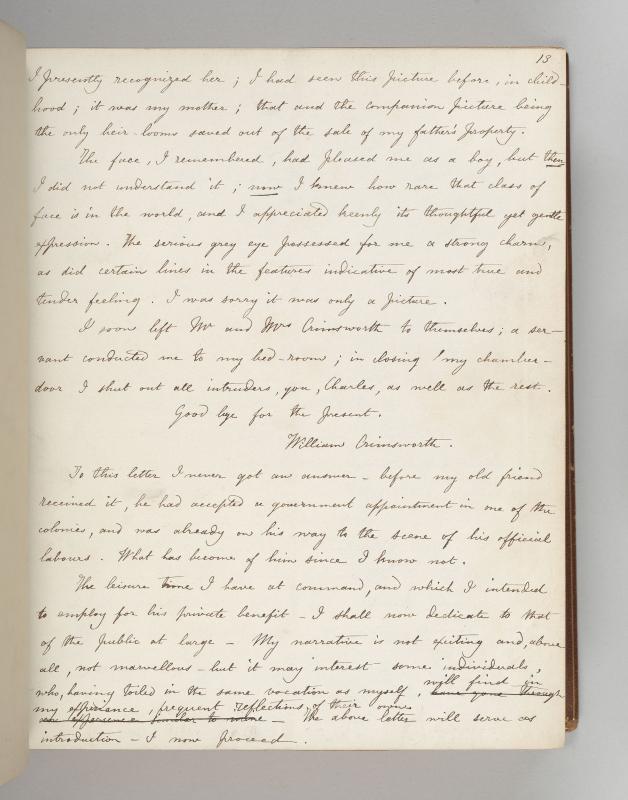 13
I presently recognized her ; I had seen this picture before, in child-
hood ; it was my mother ; that and the companion picture being
the only heir-looms saved out of the sale of my father's property.
The face, I remembered, had pleased me as a boy, but then
I did not understand it ; now I knew how rare that class of
face is in the world, and I appreciated keenly its thoughtful yet gentle
expression. The serious grey eye possessed for me a strong charm,
as did certain lines in the features indicative of most true and
tender feeling. I was sorry it was only a picture.
I soon left Mr and Mrs Crimsworth to themselves; a ser-
vant conducted me to my bed-room ; in closing my chamber-
door I shut out all intruders, you, Charles, as well as the rest.
Good bye for the present.
William Crimsworth.
To this letter I never got an answer - before my old friend
received it, he had accepted a government appointment in one of the
colonies, and was already on his way to the scene of his official
labours. What has become of him since I know not.
The leisure time I have at command, and which I intended
to employ for his private benefit - I shall now dedicate to that
of the public at large - My narrative is not exciting and, above
all, not marvellous - but it may interest some individuals,
will find in
who, having toiled in the same vocation as myself, have gone through
my experience, frequent reflections of their own
an experience similar to mine - The above letter will serve as
introduction - I now proceed.